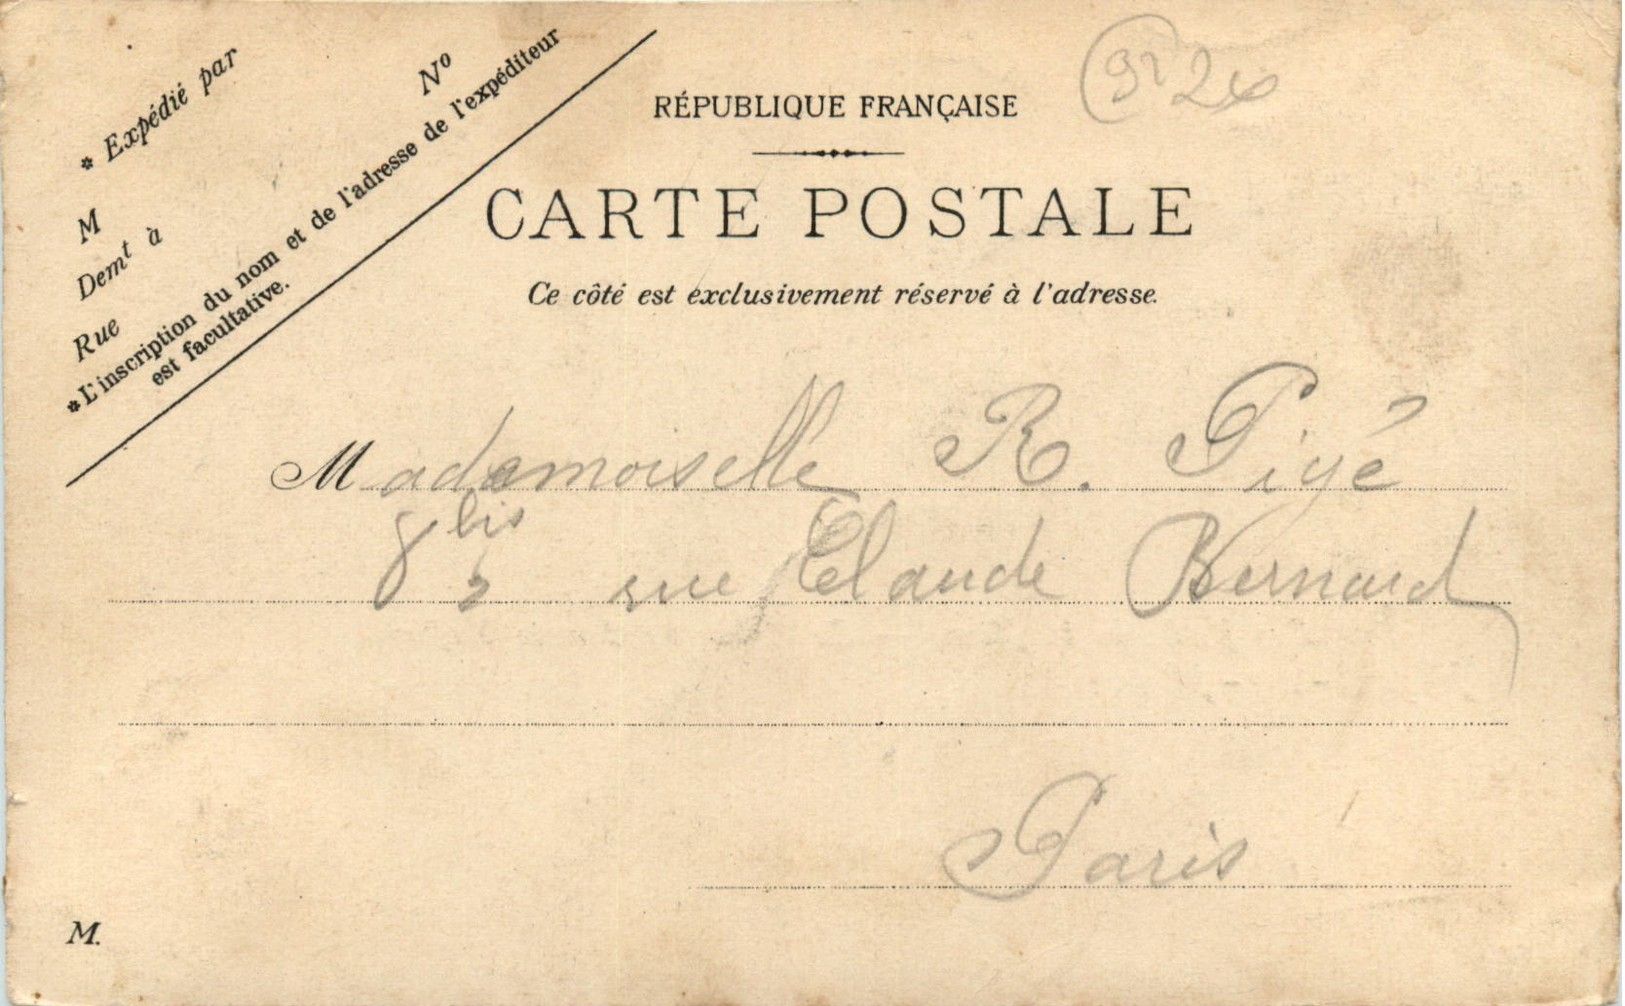 * Expédié par
N°
M
Demt à
Rue
* L'inscription du nom et de l'adresse de l'expéditeur
est facultative.
RÉPUBLIQUE FRANÇAISE
CARTE POSTALE
Ce côté est exclusivement réservé à l'adresse.
Mademoiselle R. Pigé
8 bis rue Claude Bernard
Paris
M.